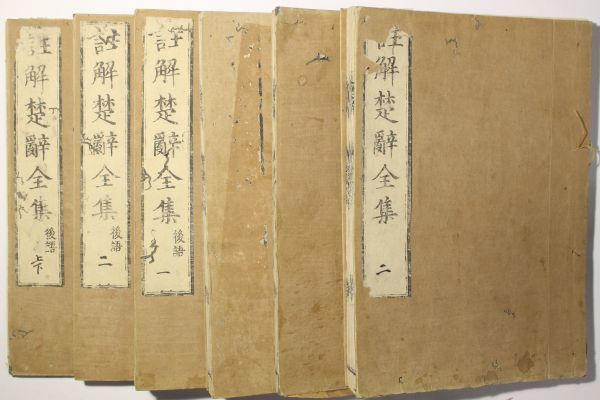 註解楚辭全集
二
註解楚辭全集
後語
一
註解楚辭全集
後語
二
註解楚辭全集
後語